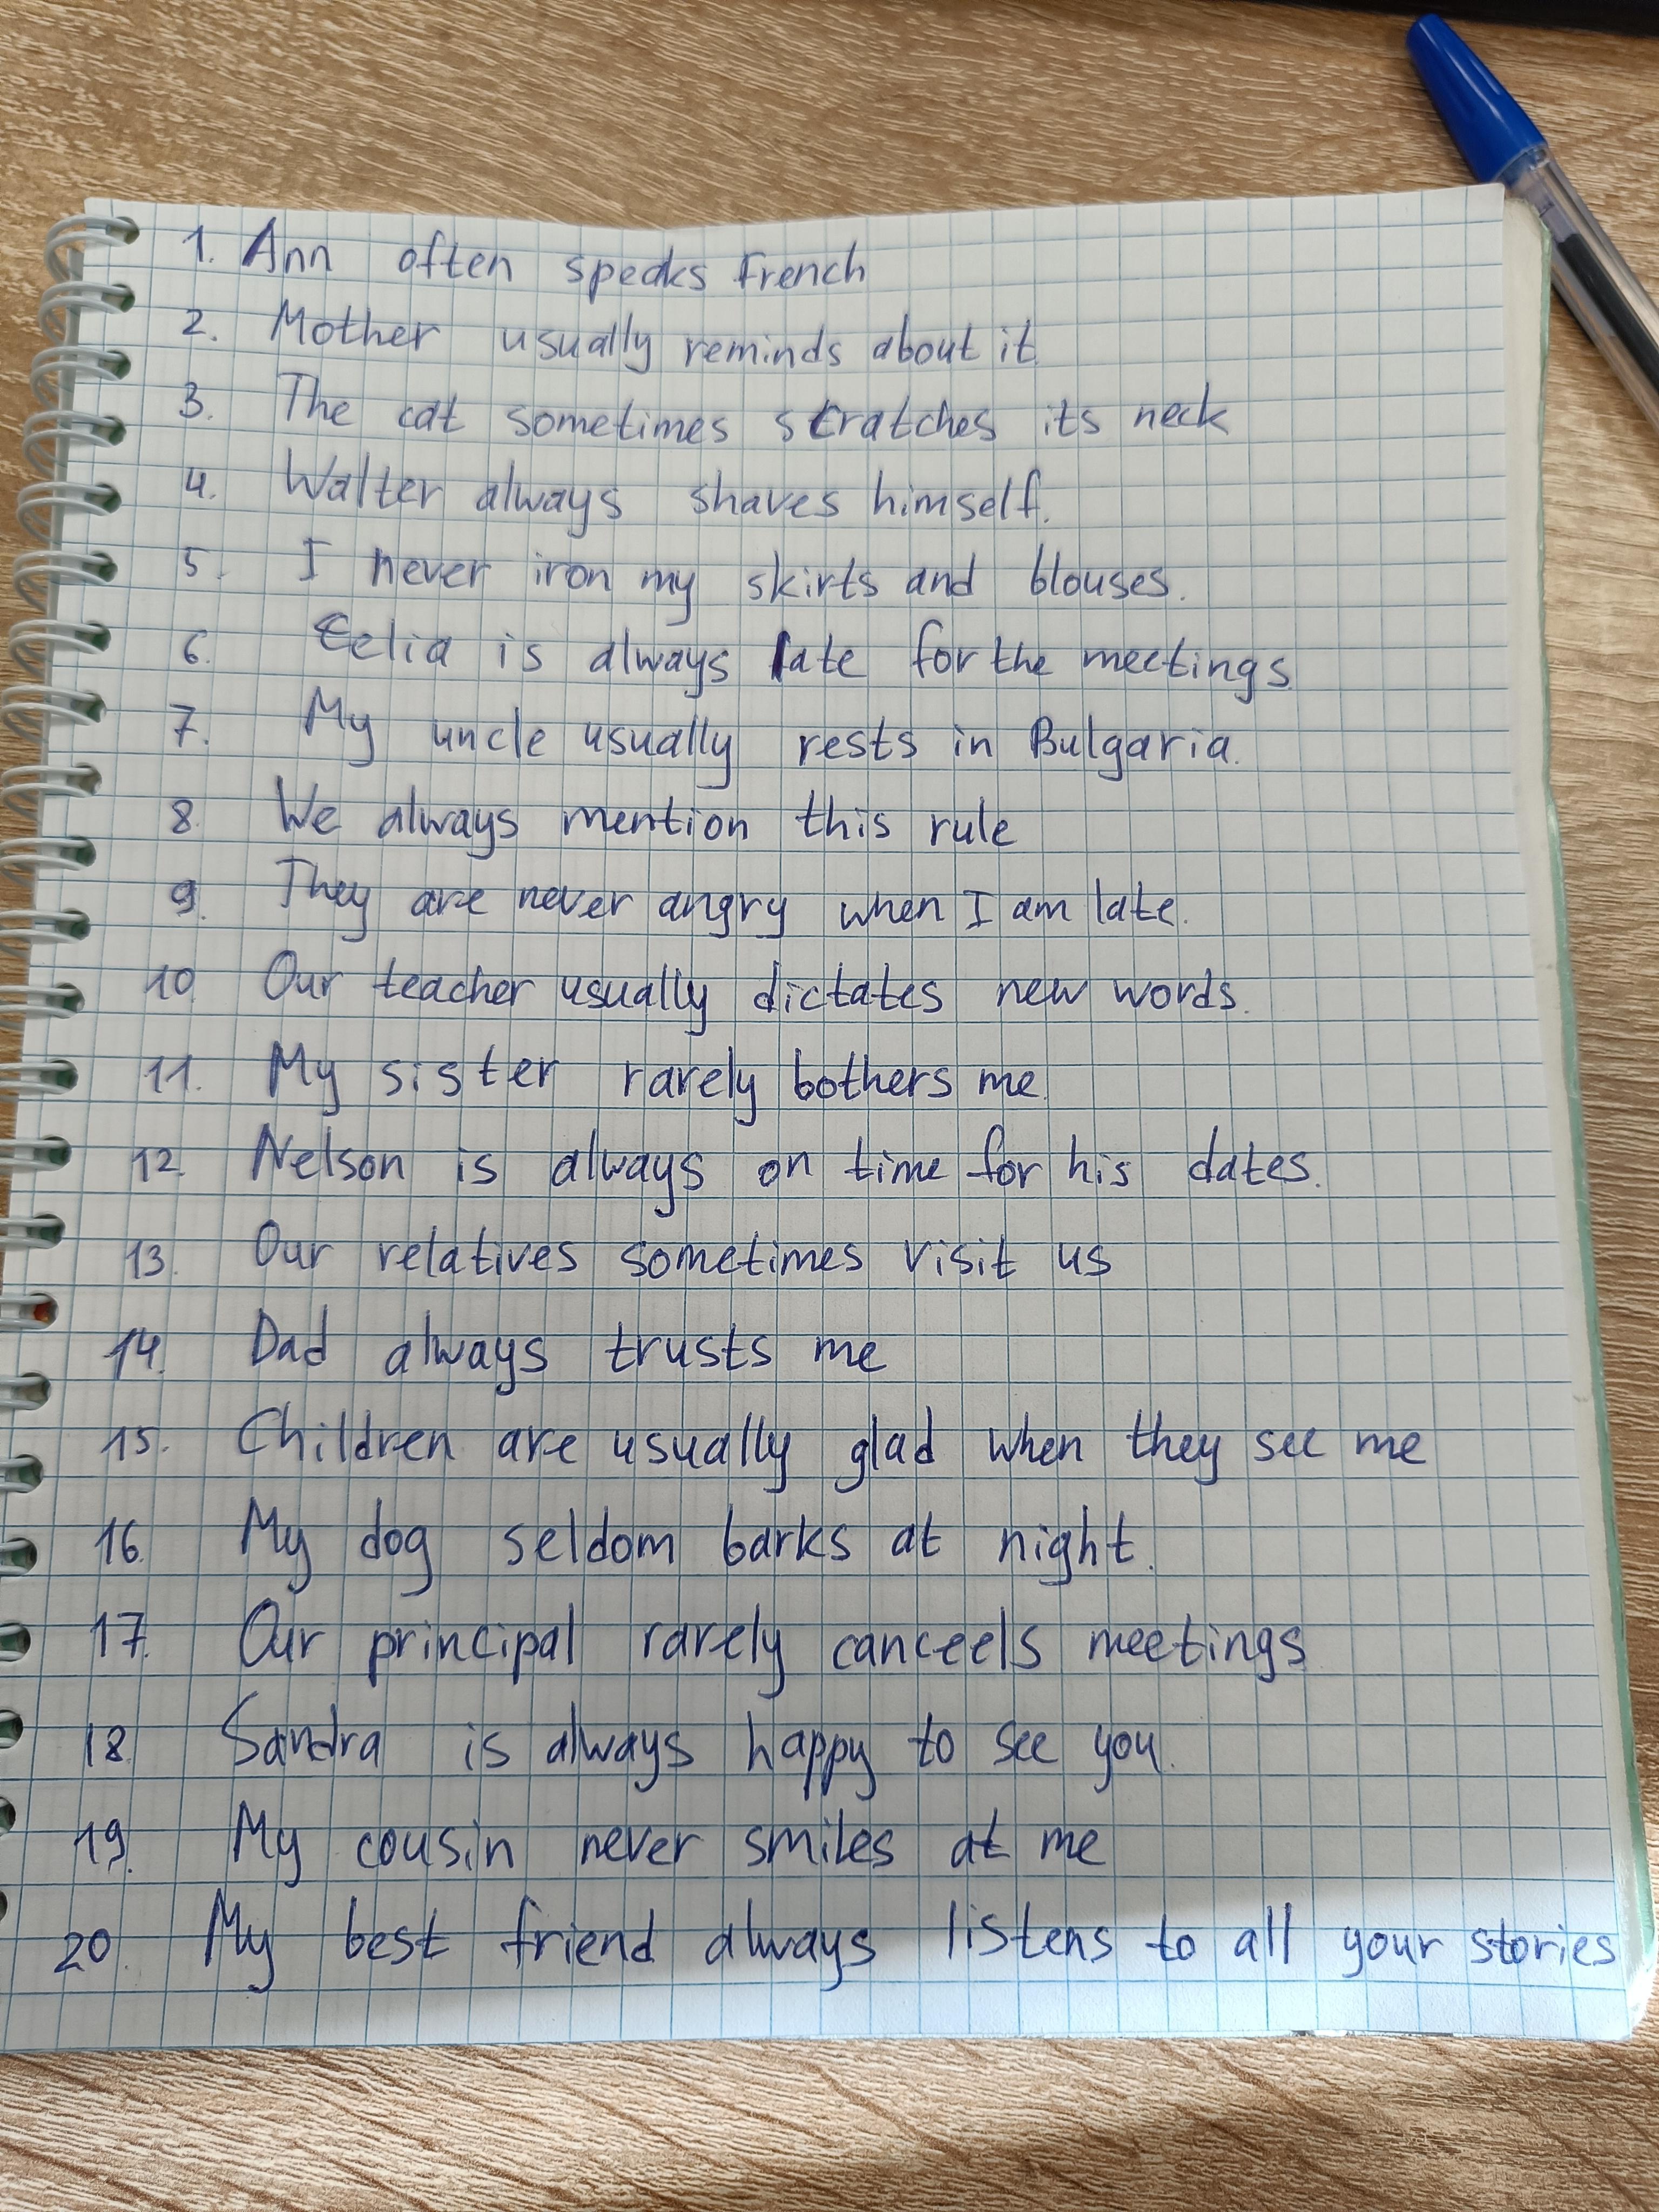 1. Ann often speaks French
2. Mother usually reminds about it.
3. The cat sometimes scratches its neck
4. Walter always shaves himself.
5. I never iron my skirts and blouses.
6. Celia is always late for the meetings.
7. My uncle usually rests in Bulgaria.
8. We always mention this rule
9. They are never angry when I am late.
10. Our teacher usually dictates new words.
11. My sister rarely bothers me.
12. Nelson is always on time for his dates.
13. Our relatives sometimes visit us
14. Dad always trusts me
15. Children are usually glad when they see me
16. My dog seldom barks at night.
17. Our principal rarely canceels meetings
18. Sandra is always happy to see you.
19. My cousin never smiles at me
20. My best friend always listens to all your stories